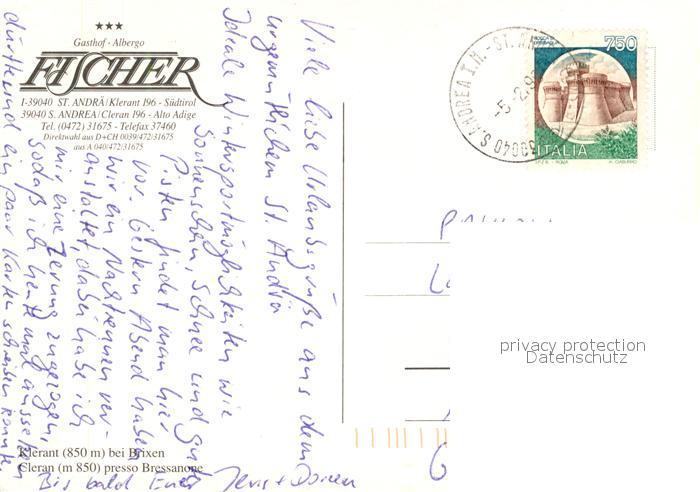 ★★★
Gasthof · Albergo
FISCHER
I-39040 ST. ANDRÄ/Klerant 196 - Südtirol
39040 S. ANDREA/Cleran 196 - Alto Adige
Tel. (0472) 31675 - Telefax 37460
Direktwahl aus D+CH 0039/472/31675
aus A 040/472/31675
Viele liebe Urlaubsgrüße aus dem
urgemütlichen St. Andrä
Ideale Wintersportmöglichkeiten wie
Sonnenschein, Schnee und gute
Pisten findet man hier
vor. Gestern Abend haben
wir ein Nachtrennen ver-
anstaltet, dabei habe ich
mir eine Zerrung zugezogen,
sodaß ich heute mal aussetzen
dürfte und ein paar Karten schreiben konnte.
Bis bald Euer Jens + Doreen
Klerant (850 m) bei Brixen
Cleran (m 850) presso Bressanone
39040 S. ANDREA I.M. - ST. AN
-5.2.9
ROCCA DI
750
ITALIA
I.P.Z.S. - ROMA
privacy protection
Datenschutz
6